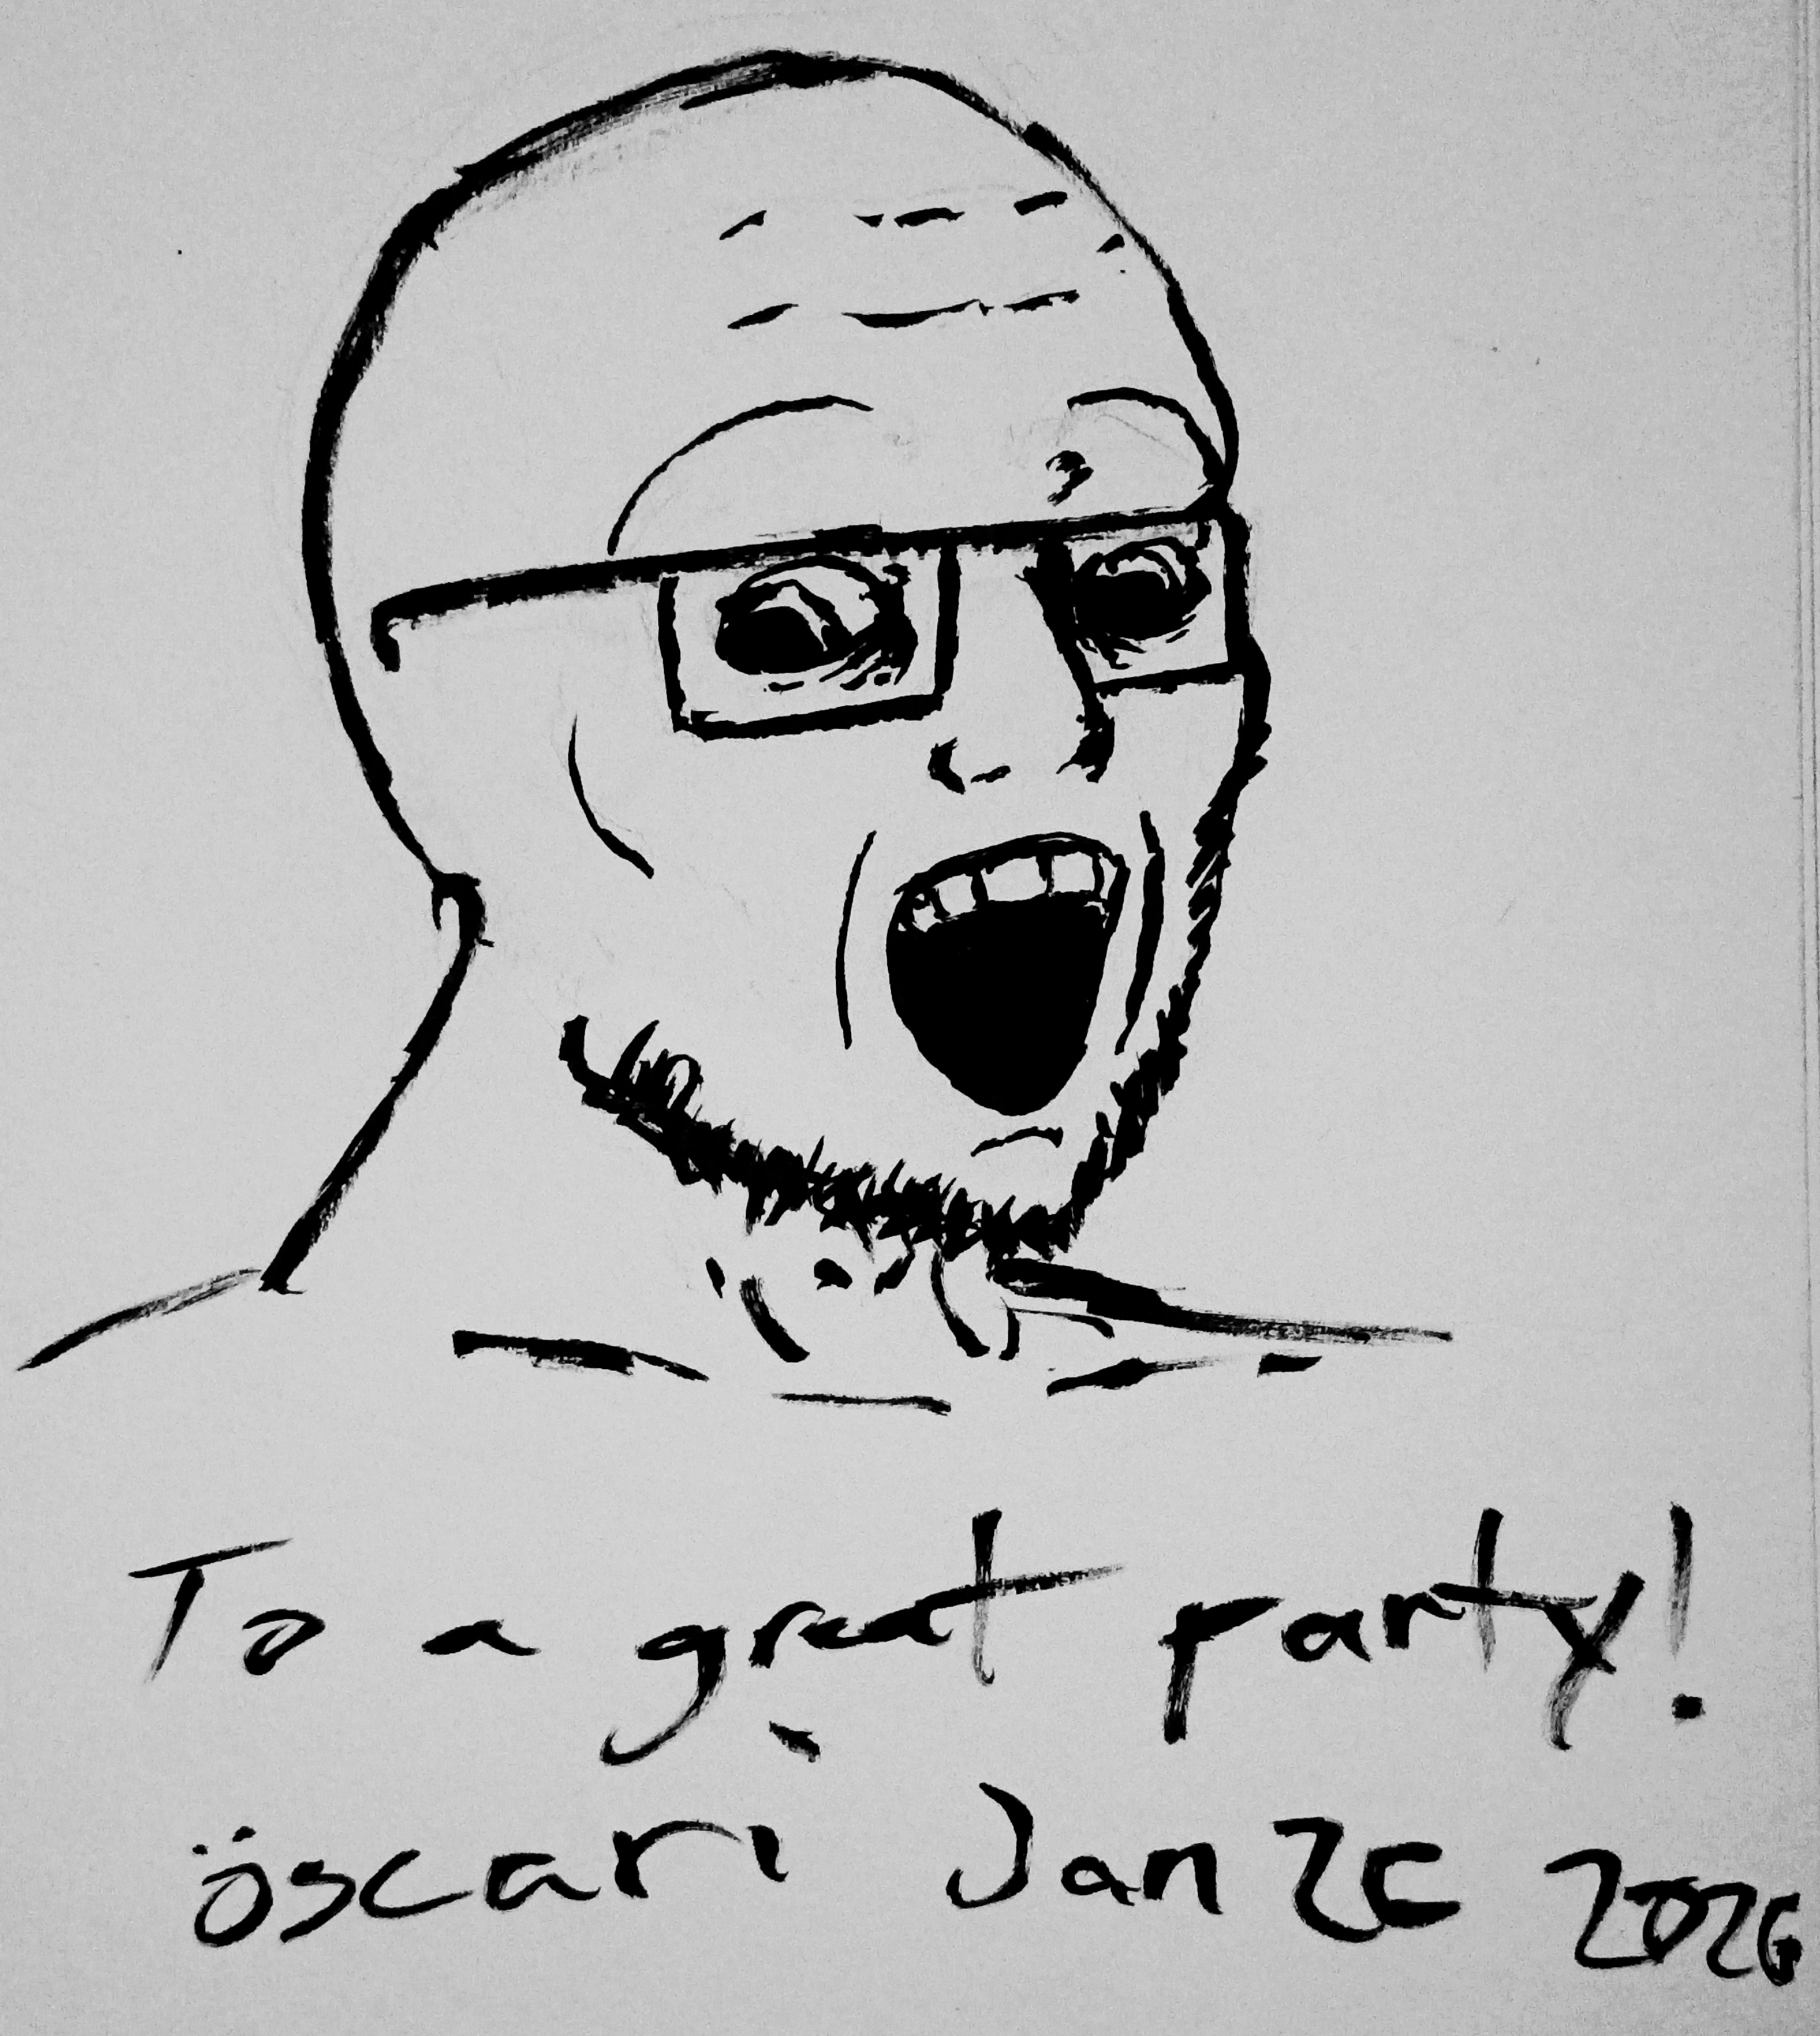 To a great party!
öscari Jan 2c 2026